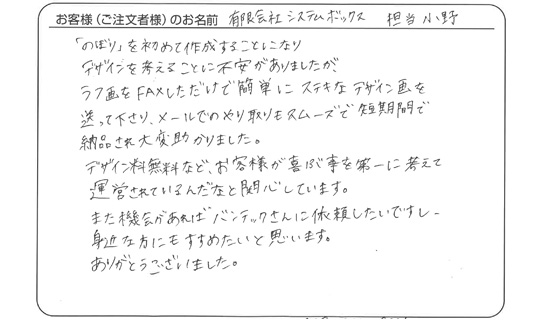 お客様（ご注文者様）のお名前 有限会社システムボックス 担当小野
「のぼり」を初めて作成することになり
デザインを考えることに不安がありましたが、
ラフ画をFAXしただけで簡単にステキなデザイン画を
送って下さり、メールでのやり取りもスムーズで短期間で
納品され大変助かりました。
デザイン料無料など、お客様が喜ぶ事を第一に考えて
運営されているんだなと関心しています。
また機会があればバンテックさんに依頼したいですし
身近な方にもすすめたいと思います。
ありがとうございました。